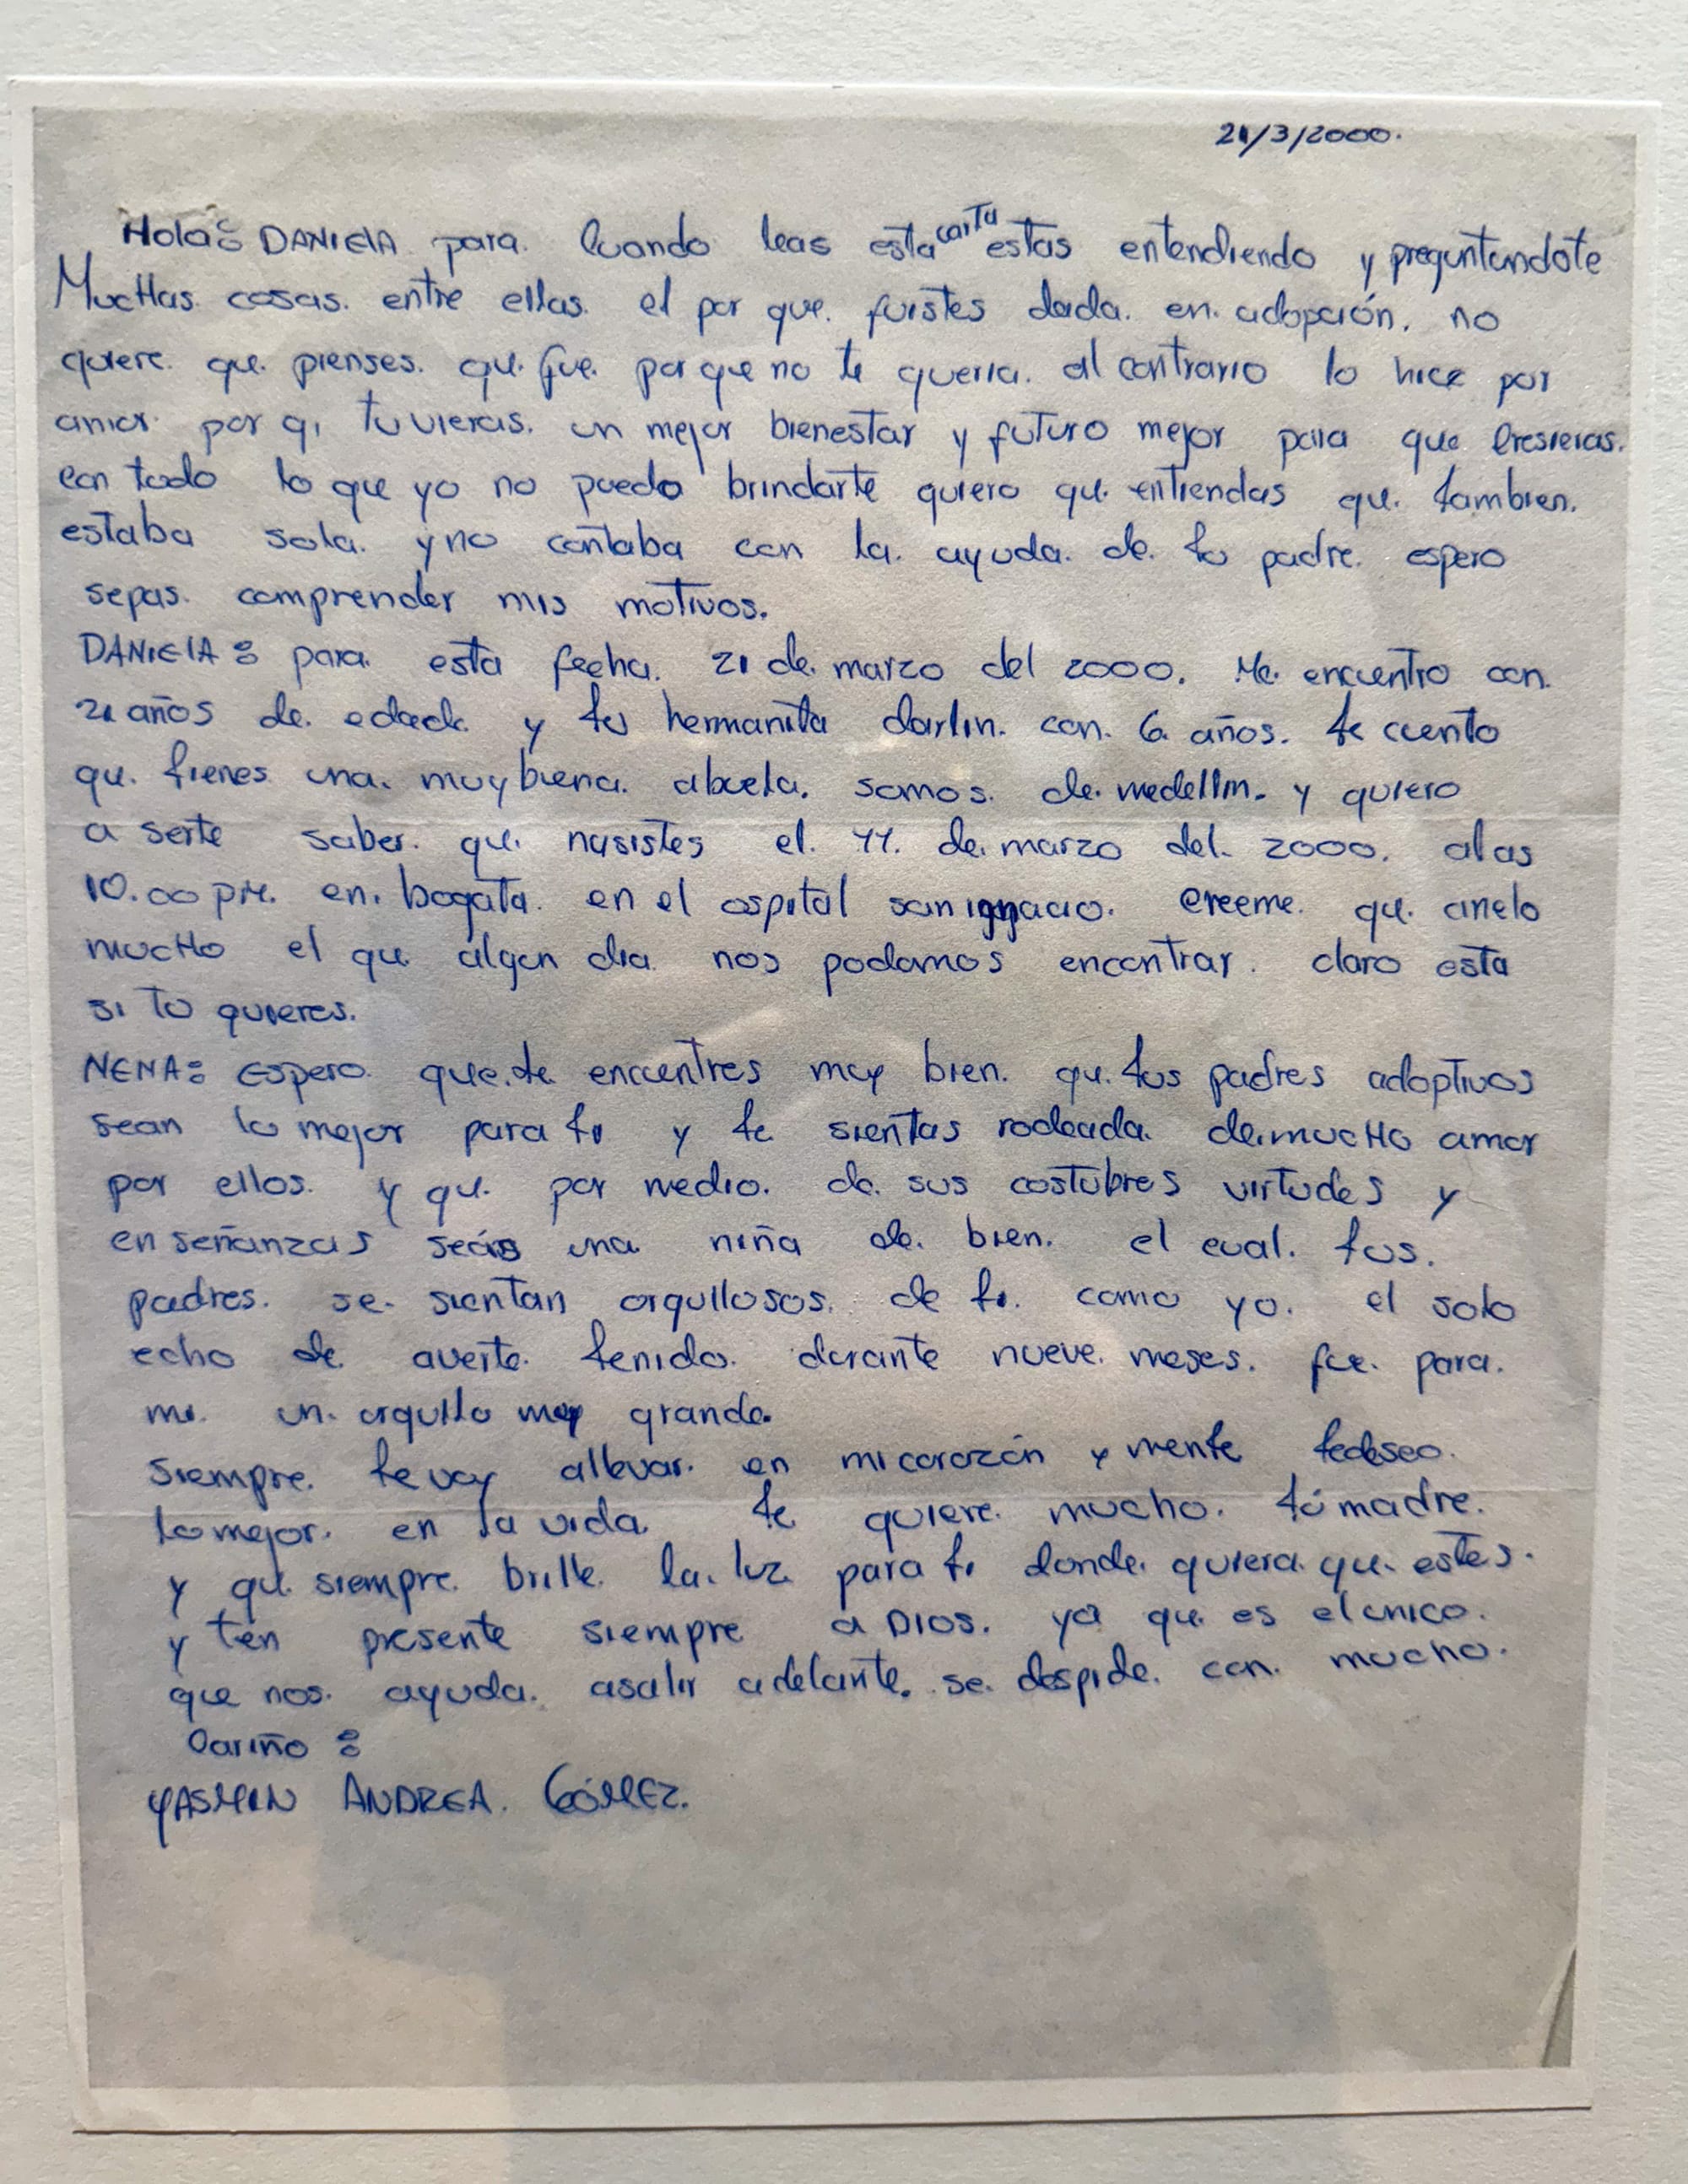 21/3/2000.
Hola: DANIElA para. Cuando leas esta carta estas entendiendo y preguntandote
Muchas. cosas. entre ellas. el por que. fuistes dada. en. adopción. no
quiere. que. pienses. qu. fue. por que no te queria. al contrario lo hice por
amor. por q, tuvieras. un mejor bienestar y futuro mejor para que cresieras.
con todo lo que yo no puedo brindarte quiero qu. entiendas qu. tambien.
estaba sola. y no contaba con la. ayuda. de. tu padre. espero
sepas. comprender mis motivos.
DANIElA: para. esta fecha. 21 de. marzo del 2000. Me. encuentro con.
21 años de. edad. y tu hermanita darlin. con. 6 años. te cuento
qu. tienes una. muy buena. abuela. somos. de. medellin. y quiero
a serte saber. qu. nasistes el. 11. de. marzo del. 2000. alas
10.00 pm. en. bogata. en el ospital san ignacio. creeme. qu. anelo
mucho el qu algun dia nos podamos encontrar. claro esta
si tu quieres.
NENA: Espero. que. te. encuentres muy bien. qu. tus padres adoptivos
sean lo mejor para ti y te sientas rodeada. de. mucho amor
por ellos. y qu. por medio. de. sus costubres virtudes y
en señanzas seas una niña de. bien. el cual. tus.
padres. se. sientan orgullosos. de ti. como yo. el solo
echo de averte. tenido. durante nueve. meses. fue. para.
mi. un. orgullo muy grande.
siempre. te voy allevar. en mi corazón y mente tedeseo.
lo mejor. en la vida. te quiere. mucho. tú madre.
y qu. siempre. brille. la. luz para ti donde. quiera. qu. estes.
y ten presente siempre a DIOS. ya qu. es el unico.
que nos. ayuda. asalir adelante. se. despide. con. mucho.
Cariño:
YASMIN ANDREA. GÓMEZ.